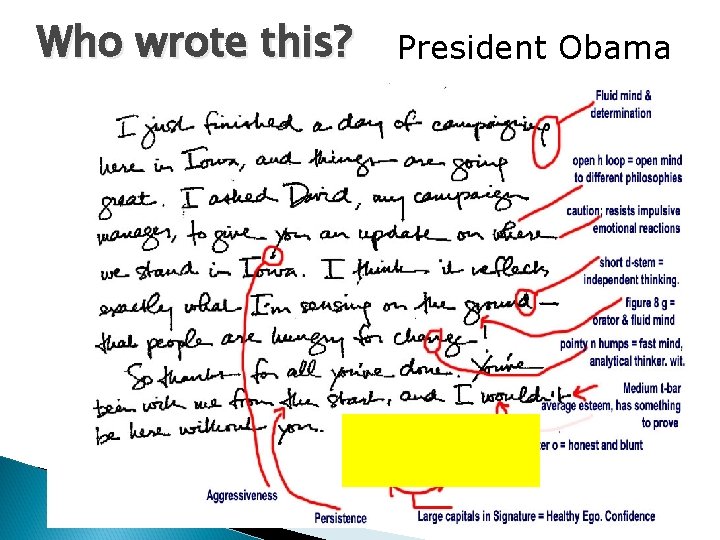 Who wrote this?
President Obama
I just finished a day of campaigning
here in Iowa, and things are going
great. I asked David, my campaign
manager, to give you an update on where
we stand in Iowa. I think it reflects
exactly what I'm sensing on the ground –
that people are hungry for change!
So thanks for all you've done. You've
been with me from the start, and I wouldn't
be here without you.
Fluid mind &
determination
open h loop = open mind
to different philosophies
caution; resists impulsive
emotional reactions
short d-stem =
independent thinking.
figure 8 g =
orator & fluid mind
pointy n humps = fast mind,
analytical thinker. wit.
Medium t-bar
average esteem, has something
to prove
ter o = honest and blunt
Aggressiveness
Persistence
Large capitals in Signature = Healthy Ego. Confidence